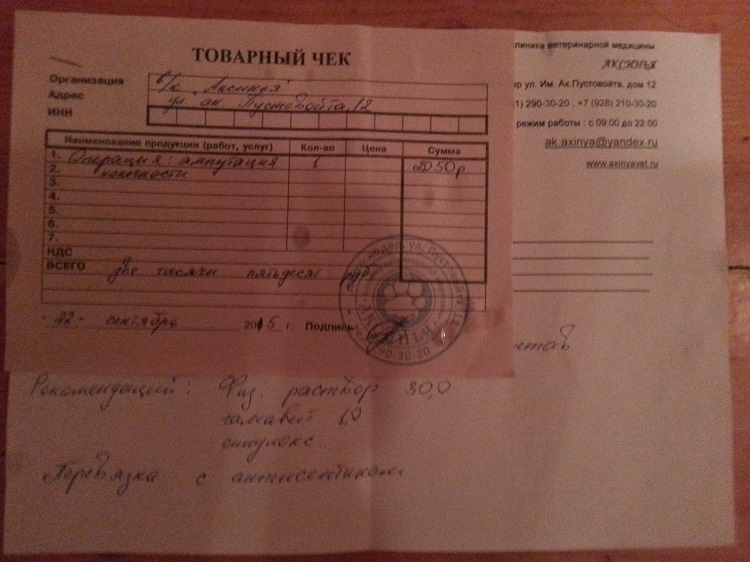 ТОВАРНЫЙ ЧЕК
Организация в/к "Аксинья"
Адрес ул. ак. Пустовойта, 12
ИНН
Наименование продукции (работ, услуг) Кол-во Цена Сумма
1. Операция: ампутация 1 2050 р
2. конечности
3.
4.
5.
6.
7.
НДС
ВСЕГО две тысячи пятьдесят руб
"22" сентябрь 2015 г. Подпись:
90-30-20
линика ветеринарной медицины
АКСИНЬЯ
р ул. Им. Ак.Пустовойта, дом 12
1) 290-30-20 ; +7 (928) 210-30-20
режим работы : с 09:00 до 22:00
ak.axinya@yandex.ru
www.axinyavet.ru
Рекомендаций: Физ. раствор 30,0
гамавит 1,0
синулокс.
Перевязка с антисептиком